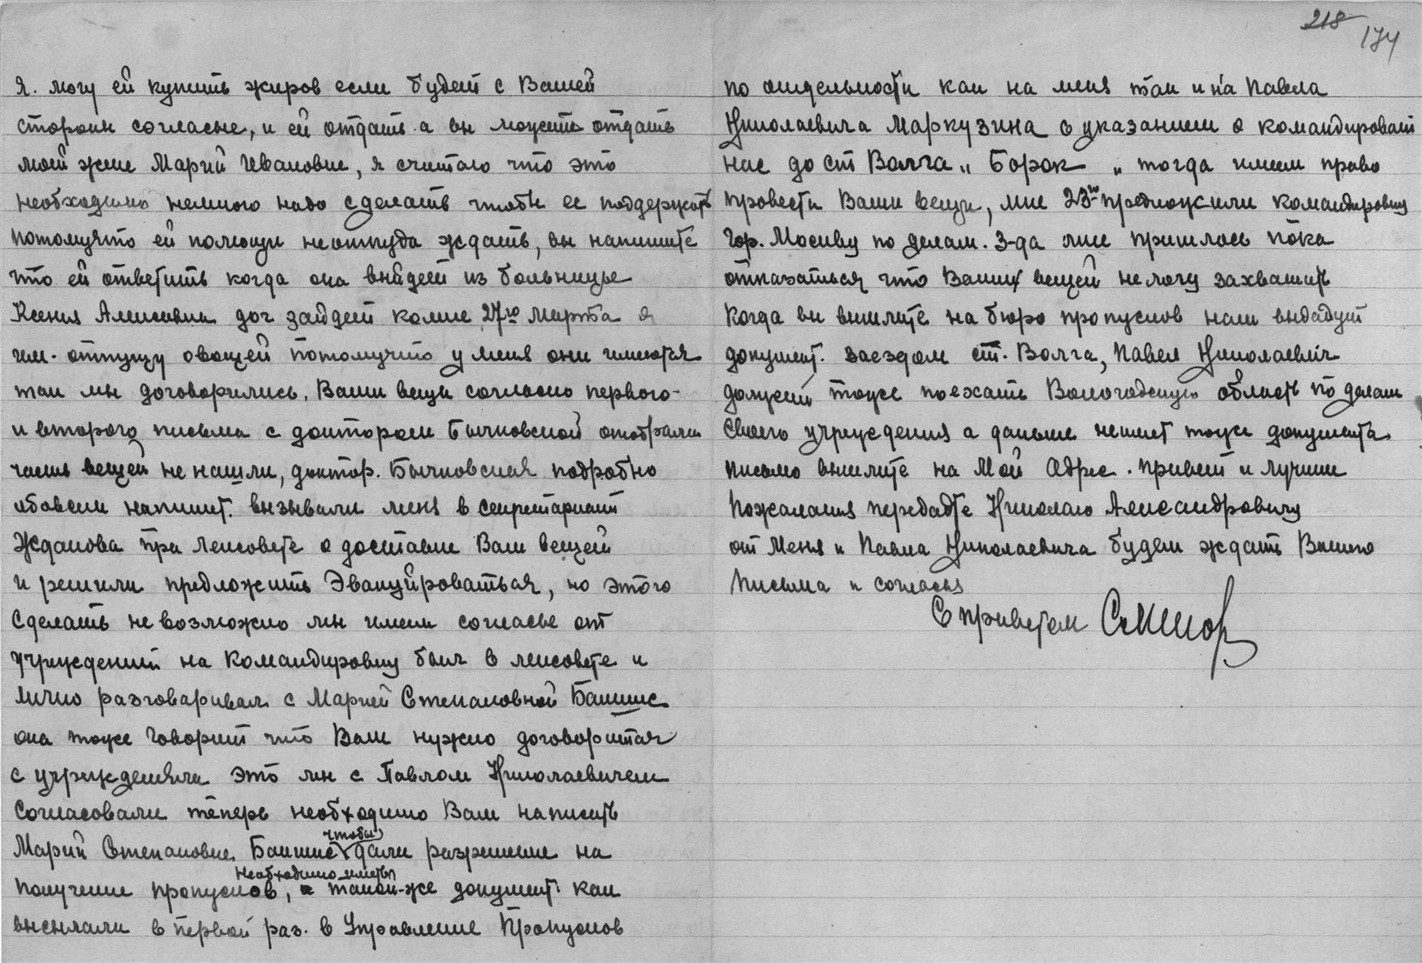 218
174
я. могу ей купить жиров если будет с Вашей
стороны согласие, и ей отдать а вы можете отдать
моей жене Марий Ивановне, я считаю что это
необходимо немного надо сделать чтобы ее поддержать
потомучто ей помощи неоткуда ждать, вы напишите
что ей ответить когда она выйдет из больницы
Ксения Алексевна доч зайдет комне 27го Марта я
им. отпущу овощей потомучто у меня они имеются
так мы договорились. Ваши вещи согласно первого-
и второго письма с доктором Бычковской отобрали
часть вещей не нашли, доктор. Бычковская подробно
обовсем напишит. вызывали меня в секретариат
Жданова при Ленсовете о доставке Вам вещей
и решили предложить Эвакуйроваться, но этого
сделать невозможно мы имеем согласье от
учреждений на командировку был в ленсовете и
лично разговаривал с Марией Степановной Бакшис
она тоже говорит что Вам нужно договорится
с учреждениями это мы с Павлом Николаевичем
согласовали теперь необходимо Вам написать
Марий Степановне Бакшис чтобы дали разрешение на
получение пропусков, Необходимо иметь такой-же документ как
высылали в первой раз. в Управление Пропусков
по отдельности как на меня так и на Павла
Николаевича Маркузина с указанием о командировай
нас до ст Волга „ Борок „ тогда имеем право
провести Ваши вещи, мне 23го предложили командировку
гор. Москву по делам. З-да мне пришлось пока
отказаться что Ваших вещей немогу захватить
когда вы вышлите на бюро пропусков нам выдадут
документ. заездом ст. Волга, Павел Николаевич
должен тоже поехать Вологодскую область по делам
своего учреждения а дальше неимет тоже документа
письмо вышлите на Мой Адрес. привет и лучшие
пожалания передадте Николаю Александровичу
от Меня и Павла Николаевича будем ждать Вашего
письма и согласия
С приветом